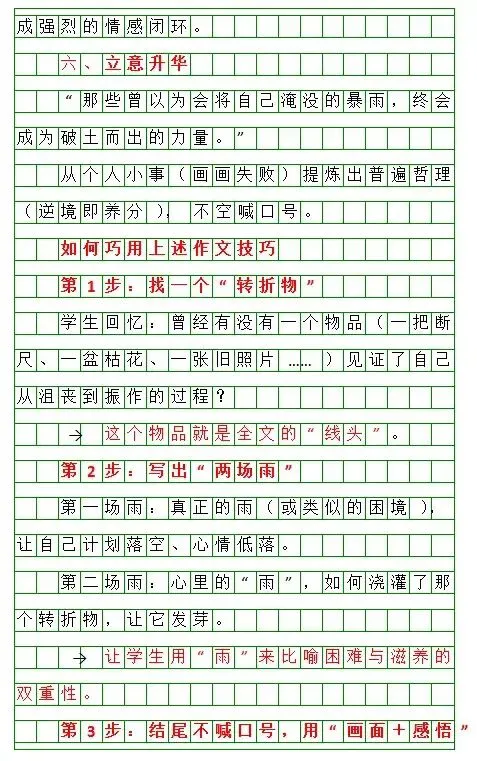 成强烈的情感闭环。
六、立意升华
“那些曾以为会将自己淹没的暴雨，终会
成为破土而出的力量。”
从个人小事（画画失败）提炼出普遍哲理
（逆境即养分），不空喊口号。
如何巧用上述作文技巧
第1步：找一个“转折物”
学生回忆：曾经有没有一个物品（一把断
尺、一盆枯花、一张旧照片……）见证了自己
从沮丧到振作的过程？
→ 这个物品就是全文的“线头”。
第2步：写出“两场雨”
第一场雨：真正的雨（或类似的困境），
让自己计划落空、心情低落。
第二场雨：心里的“雨”，如何浇灌了那
个转折物，让它发芽。
→ 让学生用“雨”来比喻困难与滋养的
双重性。
第3步：结尾不喊口号，用“画面＋感悟”